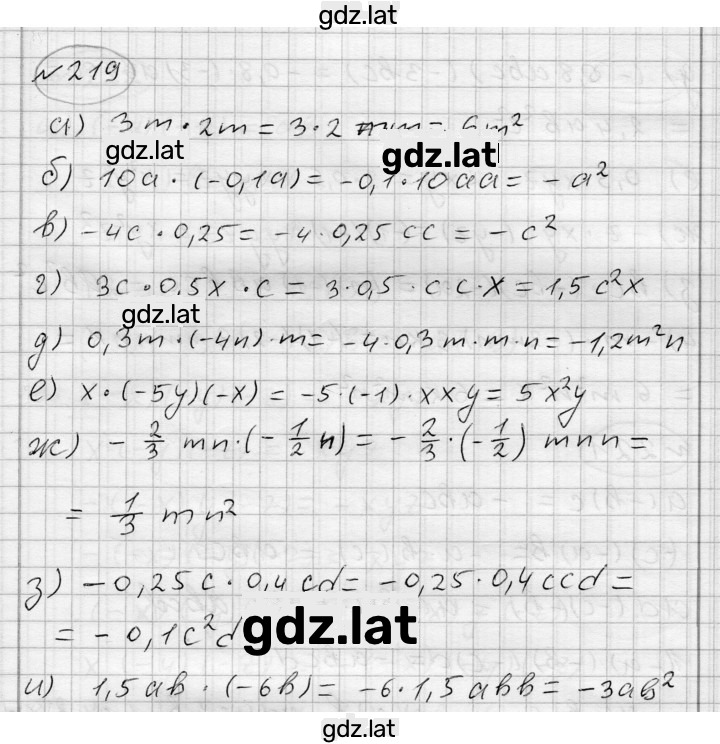 gdz.lat
№ 219
а) 3m · 2m = 3 · 2 mm = 6m²
gdz.lat
gdz.lat
б) 10a · (-0,1a) = -0,1 · 10aa = -a²
в) -4c · 0,25 = -4 · 0,25 cc = -c²
г) 3c · 0,5x · c = 3 · 0,5 · c c · x = 1,5c²x
gdz.lat
д) 0,3m · (-4n) · m = -4 · 0,3m · m · n = -1,2m²n
е) x · (-5y)(-x) = -5 · (-1) · xxy = 5x²y
ж) - 2/3 mn · (- 1/2 n) = - 2/3 · (- 1/2) mnn =
= 1/3 mn²
з) -0,25c · 0,4cd = -0,25 · 0,4ccd =
= -0,1c²d
gdz.lat
и) 1,5ab · (-6b) = -6 · 1,5abb = -3ab²
gdz.lat